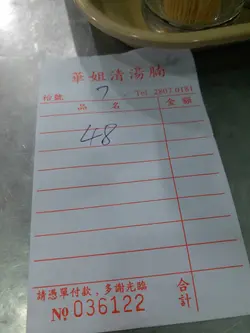 華姐清湯腩
枱號 7 Tel 2807 0181
品名 金額
48
請憑單付款，多謝光臨 合計
№ 036122